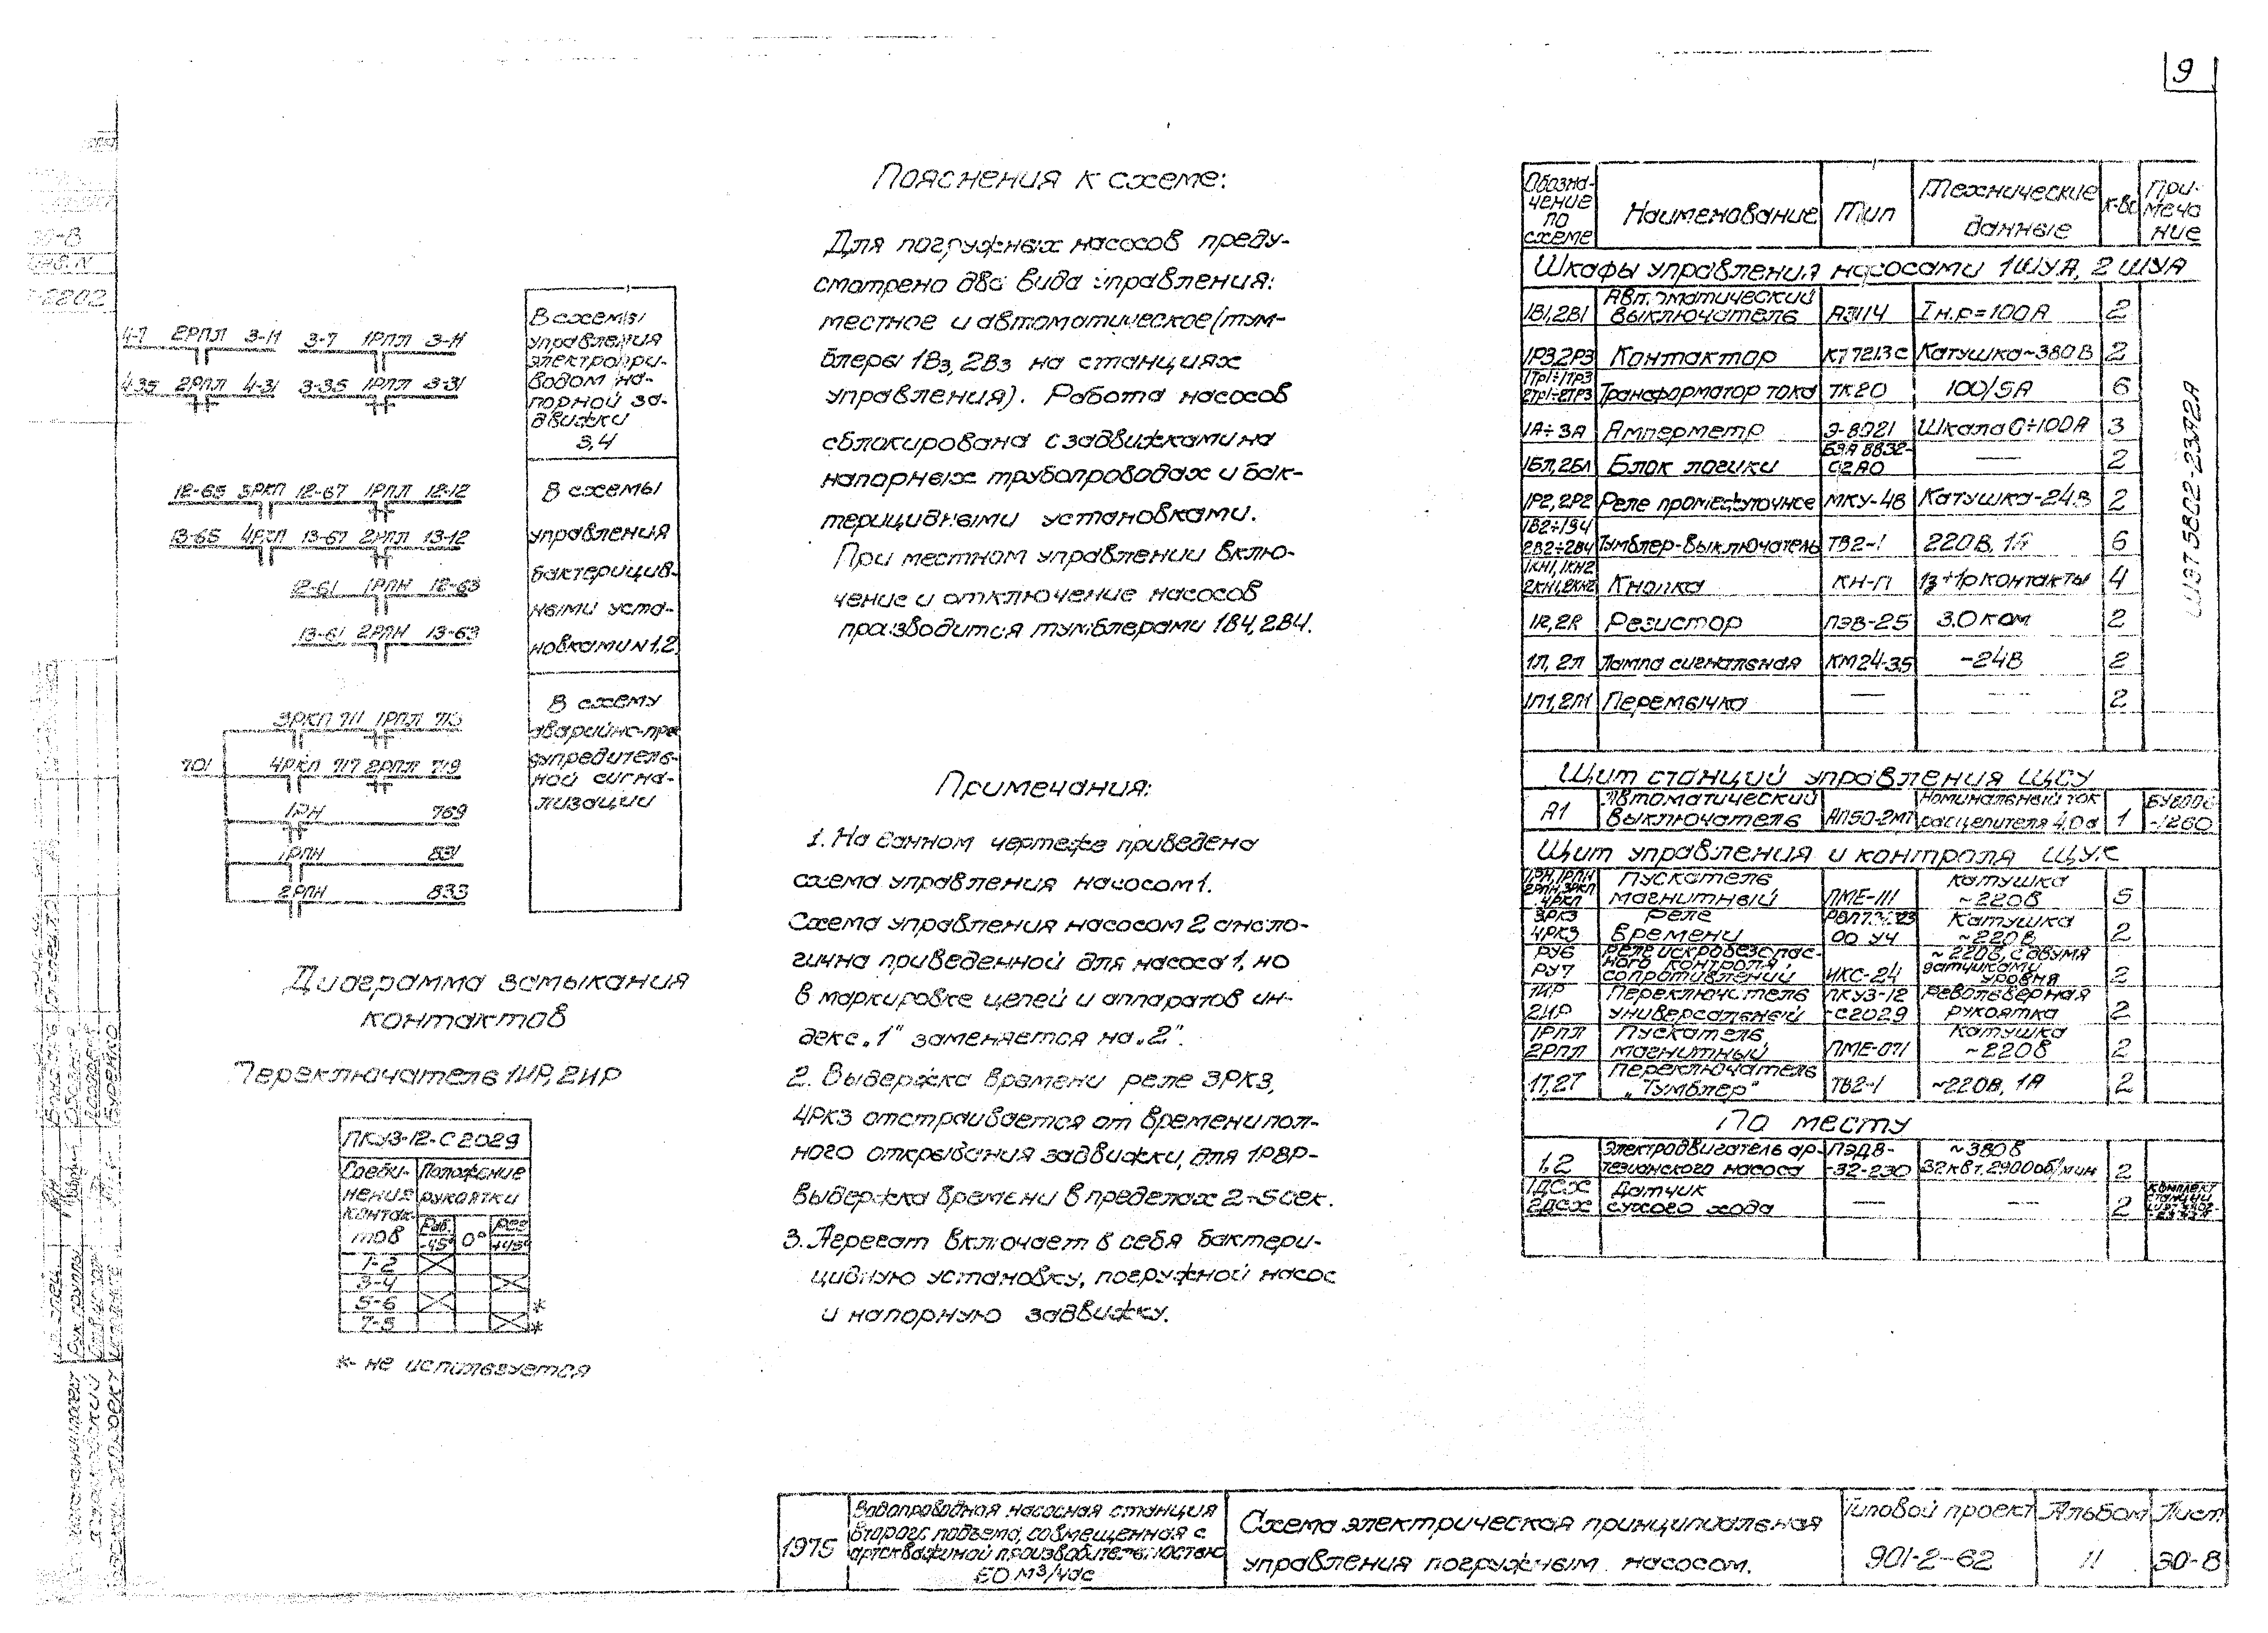 9
Пояснения к схеме:
Для погружных насосов преду-
смотрено два вида управления:
местное и автоматическое (тум-
блеры 1В3, 2В3 на станциях
управления). Работа насосов
сблокирована с задвижками на
напорных трубопроводах и бак-
терицидными установками.
При местном управлении вклю-
чение и отключение насосов
производится тумблерами 1В4, 2В4.
Примечания:
1. На данном чертеже приведена
схема управления насосом 1.
Схема управления насосом 2 анало-
гична приведенной для насоса 1, но
в маркировке цепей и аппаратов ин-
декс „1" заменяется на „2".
2. Выдержка времени реле 3РК3,
4РК3 отстраивается от времени пол-
ного открывания задвижки, для 1РВР-
выдержка времени в пределах 2÷5 сек.
3. Агрегат включает в себя бактери-
цидную установку, погружной насос
и напорную задвижку.
4-7 2РПЛ 3-11 3-7 1РПЛ 3-11
4-35 2РПЛ 4-31 3-35 1РПЛ 3-31
В схемы
управления
электропри-
водом на-
порной за-
движки
3,4
12-65 3РКП 12-67 1РПЛ 12-12
13-65 4РКП 13-67 2РПЛ 13-12
12-61 1РПН 12-63
13-61 2РПН 13-63
В схемы
управления
бактерицид-
ными уста-
новками N1,2
3РКП 711 1РПЛ 713
701 4РКП 717 2РПЛ 719
1РН 769
1РПН 831
2РПН 833
В схему
аварийно-пре
дупредитель-
ной сигна-
лизации
Диаграмма замыкания
контактов
Переключатель 1ИР, 2ИР
ПКУ3-12-С2029
Соеди-нения контак-тов Положение рукоятки
Раб. -45° 0° Рез +45°
1-2
3-4
5-6 *
7-8 *
*- не используется
Обозна-чение по схеме Наименование Тип Технические данные К-во При-меча ние
Шкафы управления насосами 1ШУА, 2ШУА
1В1,2В1 Автоматический выключатель А3114 Iн.р=100А 2
1Р3,2Р3 Контактор КТ7213С Катушка~380В 2
1ТР1÷1ТР3 2ТР1÷2ТР3 Трансформатор тока ТК20 100/5А 6
1А÷3А Амперметр Э-8021 Шкала 0÷100А 3
1БЛ,2БЛ Блок логики БЭА 8832-С2А0 — 2
1Р2,2Р2 Реле промежуточное МКУ-48 Катушка-24В 2
1В2÷1В4 2В2÷2В4 Тумблер-выключатель ТВ2-1 220В, 1А 6
1КН1,1КН2 2КН1,2КН2 Кнопка КН-П 1з+1р контакты 4
1R,2R Резистор ПЭВ-25 3.0 ком 2
1Л, 2Л Лампа сигнальная КМ24-35 -24В 2
1П1,2П1 Перемычка — — 2
ШЭТ5802-23А2А
Щит станций управления ЩСУ
А1 Автоматический выключатель АП50-2МТ Номинальный ток расцепителя 4,0а 1
Щит управления и контроля ЩУК
1РН,1РПН 2РПН,3РКП 4РКП Пускатель магнитный ПМЕ-111 катушка ~220В 5
3РК3 4РК3 Реле времени Катушка ~220В 2
РУ6 РУ7 Реле искробезопас-ного контроля сопротивлений ИКС-2Н ~220В, с двумя датчиками уровня 2
1ИР 2ИР Переключатель универсальный ПКУ3-12 -С2029 Револьверная рукоятка 2
1РПЛ 2РПЛ Пускатель магнитный ПМЕ-071 Катушка ~220В 2
1Т,2Т Переключатель „Тумблер" ТВ2-1 ~220В, 1А 2
По месту
1,2 Электродвигатель ар-тезианского насоса ПЭДВ-32-230 ~380В 32квт. 2900об/мин 2
1ДСХ 2ДСХ Датчик сухого хода — — 2
1975
Водопроводная насосная станция
второго подъема, совмещенная с
артскважиной производительностью
60 м³/час
Схема электрическая принципиальная
управления погружным насосом.
Типовой проект
901-2-62
Альбом
II
Лист
ЭО-8